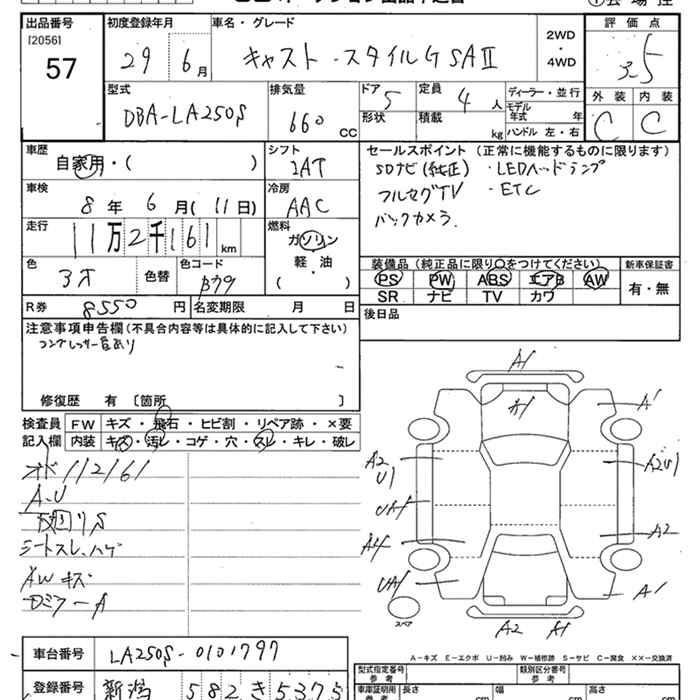 出品番号
[2056]
57
初度登録年月
29 6月
車名・グレード
キャスト・スタイルG SAⅡ
2WD
・
4WD
評価点
3.5
型式
DBA-LA250S
排気量
660 CC
ドア
5
形状
定員
4 人
積載
kg
ディーラー・並行
モデル年式 年
ハンドル 左・右
外装
C
内装
C
車歴
自家用・( )
シフト
IAT
セールスポイント (正常に機能するものに限ります)
SDナビ(純正) ・LEDヘッドランプ
フルセグTV ・ETC
バックカメラ.
車検
8年 6月(11日)
冷房
AAC
走行
11万2千161km
燃料
ガソリン
軽・油
( )
色
色替
色コード
装備品 (純正品に限り○をつけてください)
PS PW ABS エアB AW
SR ナビ TV カワ
新車保証書
有・無
R券 8550円
名変期限 月 日
後日品
注意事項申告欄(不具合内容等は具体的に記入して下さい)
コンプレッサー音あり
修復歴 有 〔箇所 〕
検査員記入欄
FW キズ・飛石・ヒビ割・リペア跡・×要
内装 キズ・汚レ・コゲ・穴・スレ・キレ・破レ
オド112161
A.U
下回りS
シートスレ.ハゲ
AWキズ
A1
A1
A1
A2
U1
A2U1
UA1
A4
A2
UA1
A1
スペア
A2 A1
A-キズ E-エクボ U-凹み W-補修跡 S-サビ C-腐食 ××-交換済
車台番号
LA250S-0101797
型式指定番号
参考
類別区分番号
参考
登録番号
新潟 582 き 5375
車庫証明用
参考
長さ cm
幅 cm
高さ cm